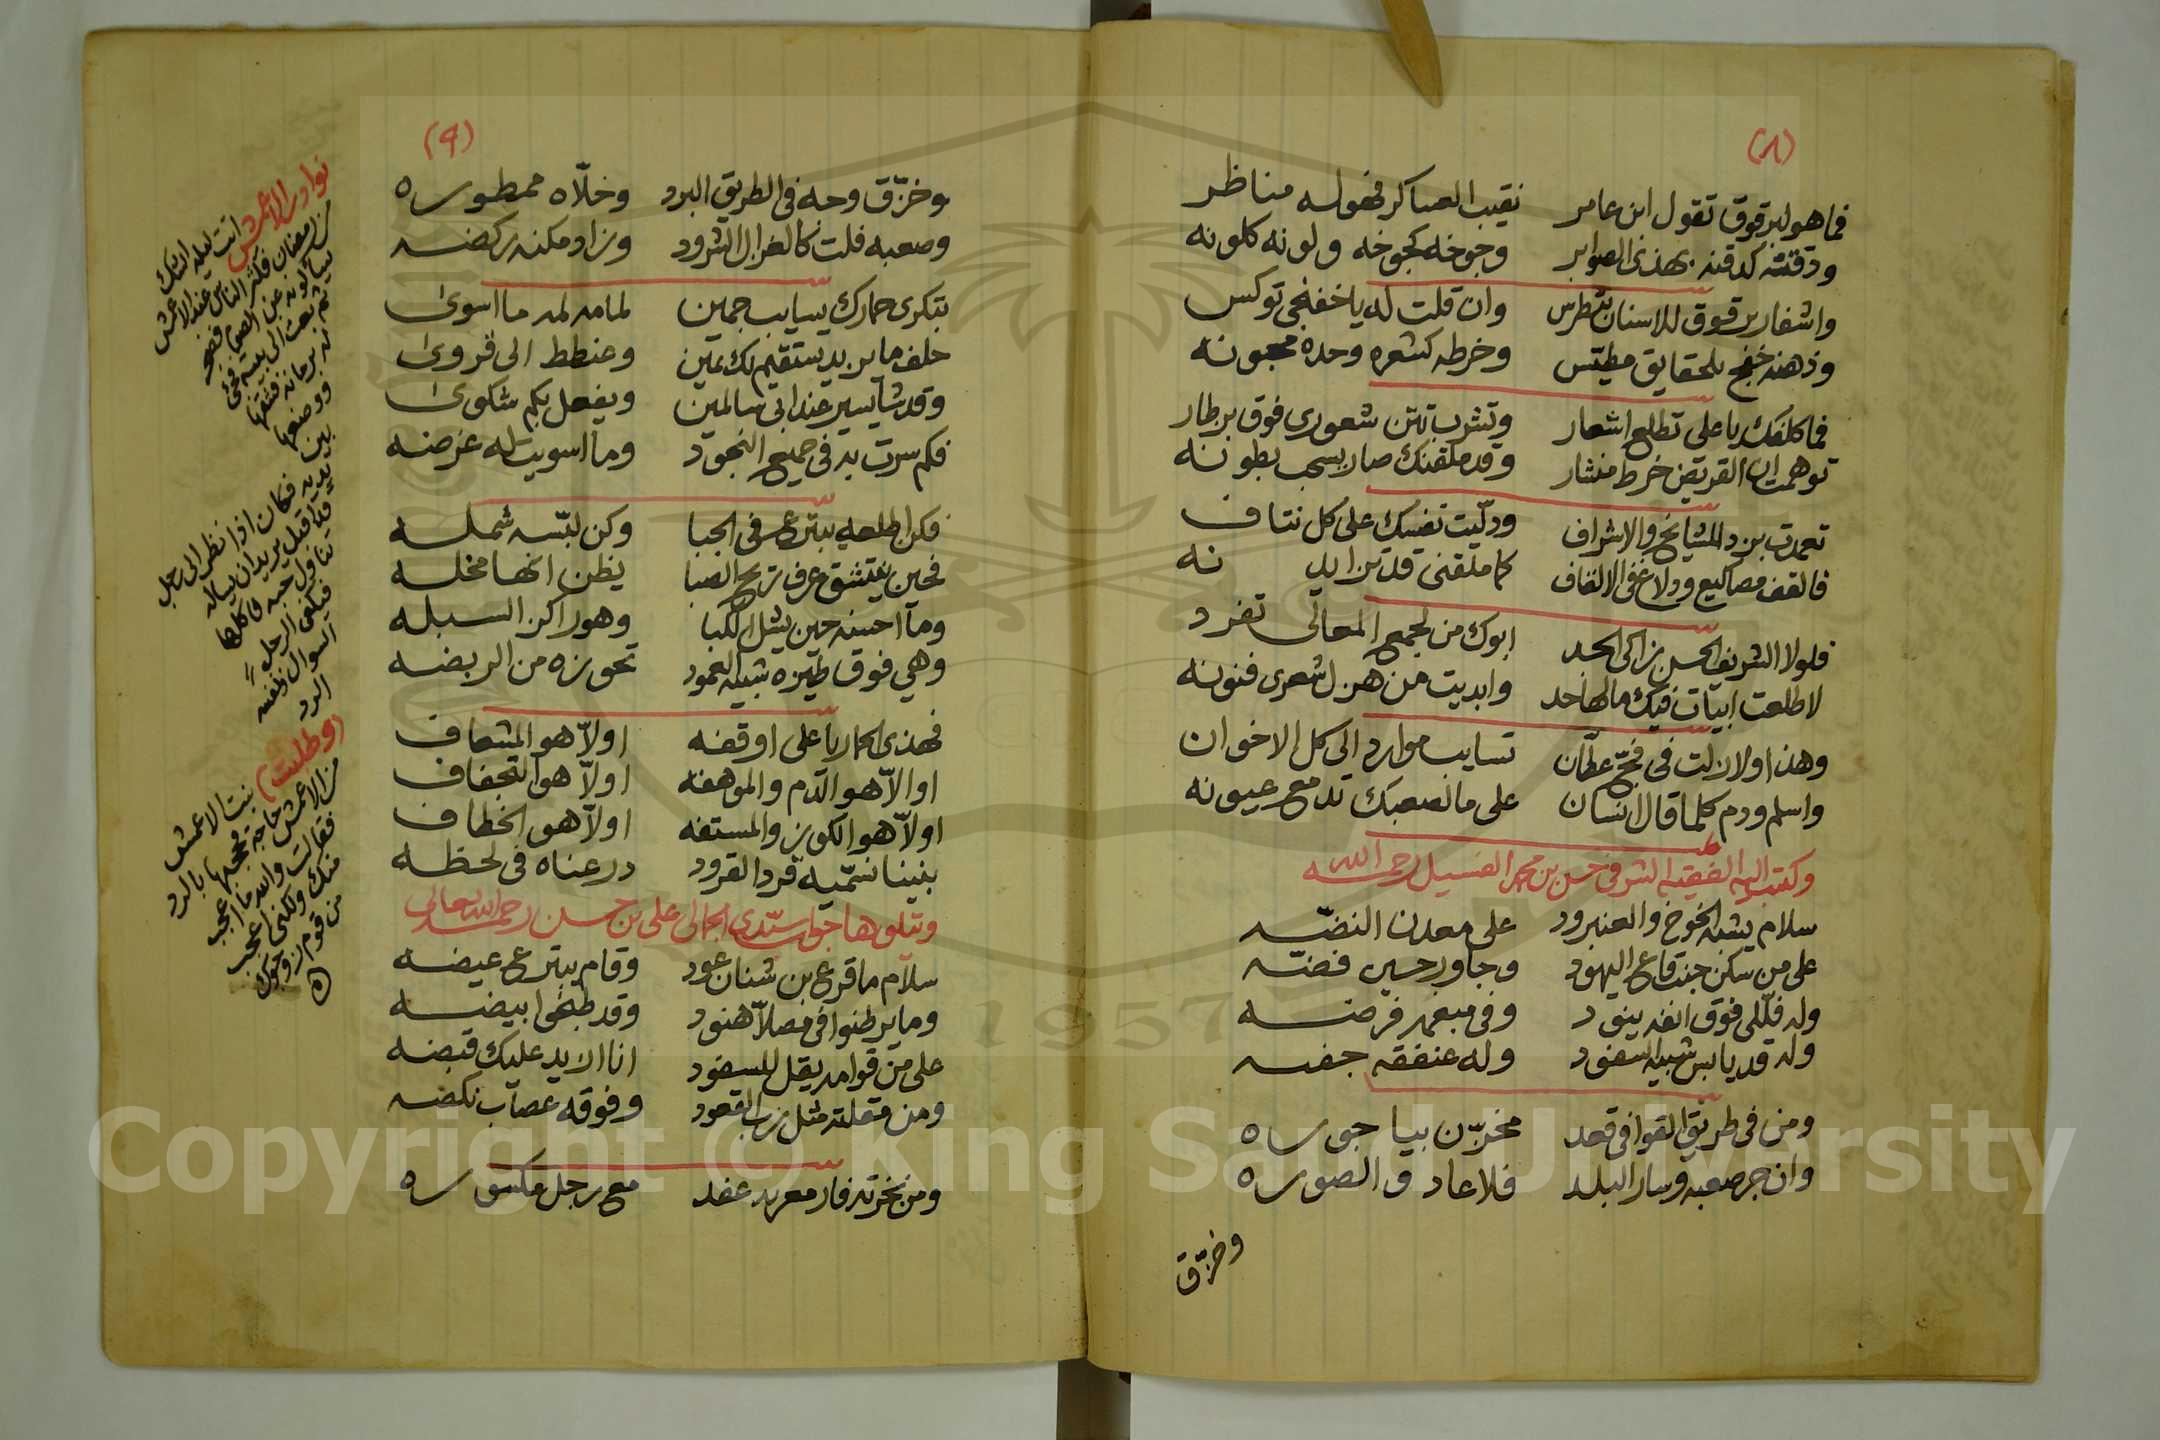 (٨)
فما هو لبرقوق تقول ابن عامر نقيب العساكر فحوله مناظر
ودقنته كدقنه بهذى الصوابر وجوخه كجوخه ولونه كلونه
واشفار برقوق للاسنان تطرس وان قلت له يا خفنجى توكس
وذهنه خفنج بلحقايق مطيّس وخرطه كشعره وحده معجونه
فما كلفك يا على تطلع اشعار وتشرب تتن شعورى فوق بربطار
توهمت ان القريض خرط منشار وقد ملقنك صار يسحب بطونه
تعمدت بزد المشايخ والاشراف ودلّيت نفسك على كل نتاف
فالقف مصاكيع ودلاغ فى الالفاف كما ملقنى قد تزايد نه
فلولا الشريف الحسن زاكى الجد ابوك من لجمع المعالى تفرد
لاطلعت ابيات فيك مالها حد وابديت من هزل شعرى فنونه
وهذا ولا زلت فى فتح عطّان تسايب موارد الى كل الاخوان
واسلم ودم كلما قال انسان على ما نصعبك تدمع عيونه
وكتب اليه الفقيه الشرفى حسن بن محمد الفسيل رحمه الله
سلام يشبه الخوخ والعنبرود على معدن النضّه
على من سكن جنب قاع اليهود وجاور حسين فضّه
وله فلّلى فوق انفه ينود وفى مبعره فرضه
وله قد يابس شبيه السفود وله عنفقه جفسه
ومن فى طريق القوافى قعد مخزّن بيا جوساه
وان جر صعبه وسار البلد فلا عاد والصوره
وخزّق
(٩)
وخزّق وحه فى الطريق البرد وخلّاه ممطوسره
وصعبه فلت كالغزال الشرود وزاد مكنه ركضه
بتكرى حمارك يسايب جمين لمامه لمه ما اسوى
حلف ما يريد يستقيم لك يمين وعنطط الى فروى
وقد شا يسير عند ابى سالمين ويفعل بكم شكوى
فكم سرت به فى جميع النجود وما اسويت له غرضه
فكن اطلعه يبترع فى الجبا وكن لبّسه شمله
فحين يعتشق عرف تريح الصبا يظن انها مخله
وما احسنه حين يشل الكبا وهو راكن السبله
وهي فوق طيزه شبيه العمود تحوزه من الربضه
فهذى الحمار يا على اوقفه اولّا هو المشعاف
او الّا هو الدم والموهفه اولّا هو التجفاف
اولّا هو الكوز والمستفه اولّا هو الخطاف
بنينا نسمّيه قرد القرود درعناه فى لحظه
ويتلوها جواب سيّدى الجمالى على بن حسن رحمه الله تعالى
سلام ما قرع بن شنان عود وقام يبترع عيضه
وما يرطنوا فى مصلّا هنود وقد طبخوا بيضه
على من قوامه يقل للسفود انا الايد عليك قبضه
ومن مقلته مثل زب القعود وفوقه عصاب نكضه
ومن نخرته فار معربد عفد مع رجل مكسوره
نوادر الاعمش
اتت ليلة الشك
من رمضان فكثر الناس عند الاعمش
يسألونه عن الصيام فضجر
ثم بعث الى بيته فجئ
له برمانة فشقها
ووضعها
بين
يديه فكان اذا نظر الى رجل
قد اقبل يريد ان يساله
تناول حبه فاكلها
فيكفى الرجل
السوال ونفسه
الرد
(وطلبت) بنت الاعمش
من الاعمش حاجة فحجها بالرد
فقالت والله ما اعجب
منك ولكنى اعجب
من قوم زوجوك